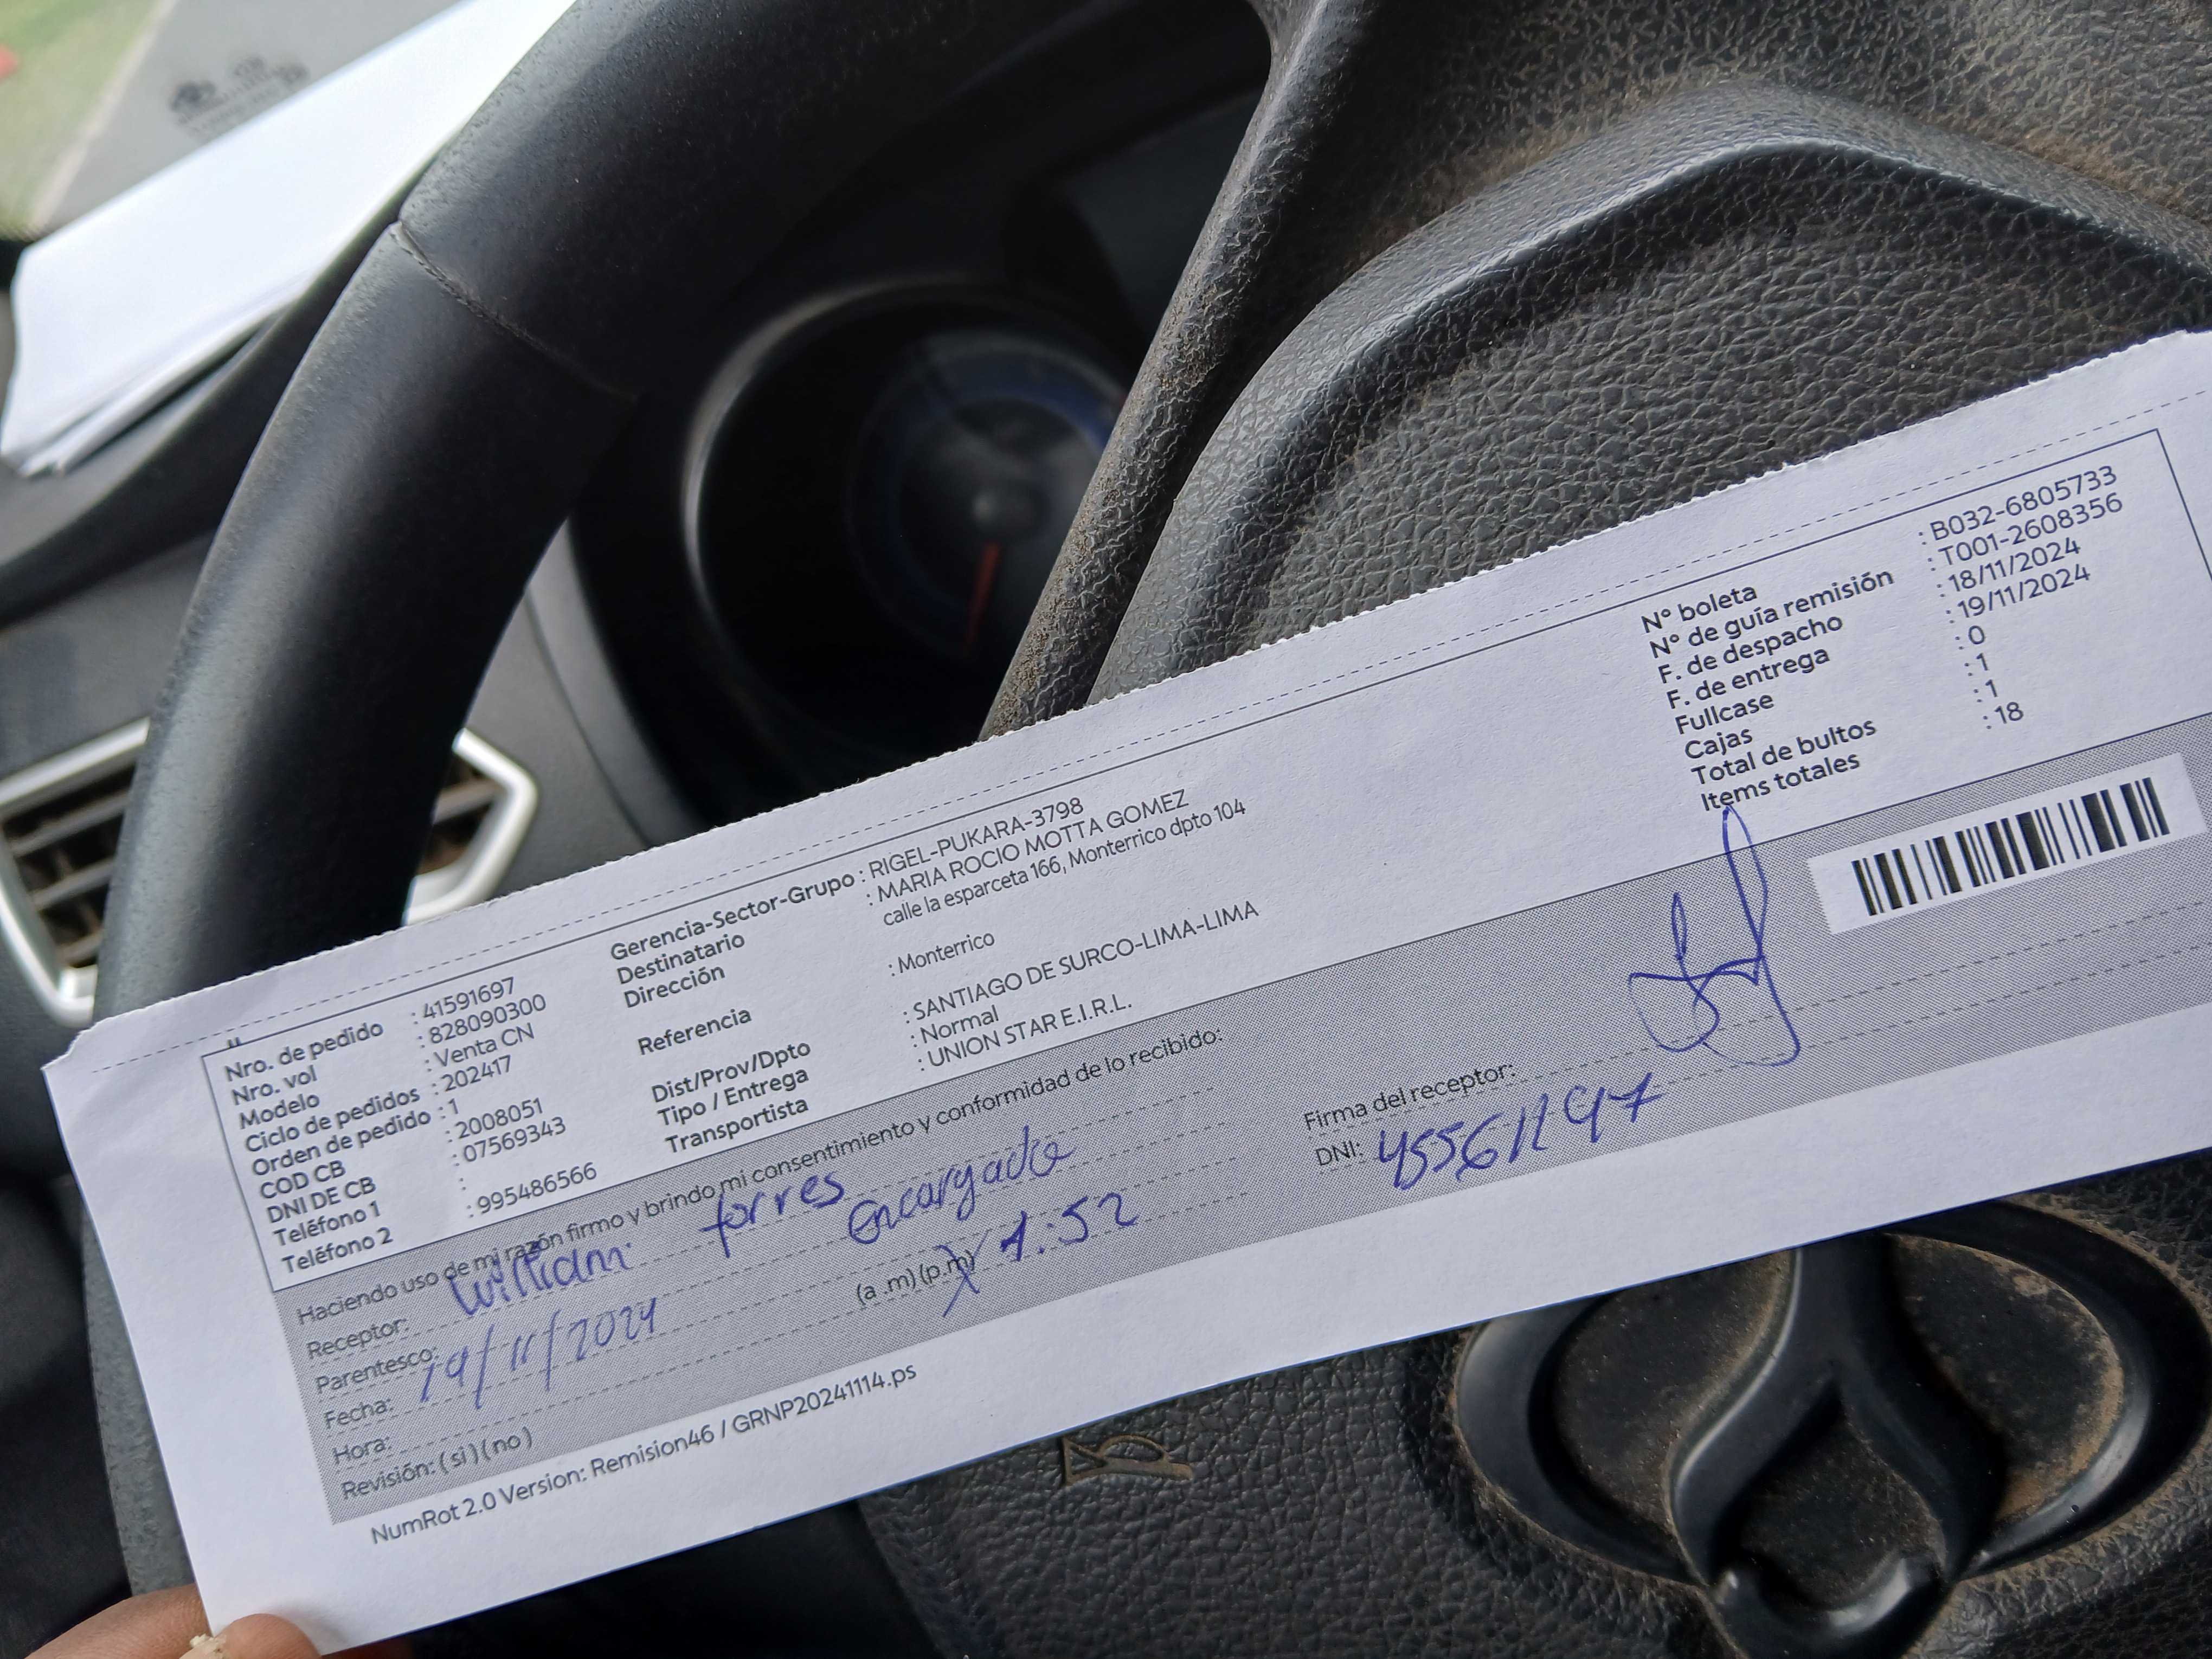 Nro. de pedido : 41591697
Nro. vol : 828090300
Modelo : Venta CN
Ciclo de pedidos : 202417
Orden de pedido : 1
COD CB : 2008051
DNI DE CB : 07569343
Teléfono 1 :
Teléfono 2 : 995486566
Gerencia-Sector-Grupo : RIGEL-PUKARA-3798
Destinatario : MARIA ROCIO MOTTA GOMEZ
Dirección calle la esparceta 166, Monterrico dpto 104
Referencia : Monterrico
Dist/Prov/Dpto : SANTIAGO DE SURCO-LIMA-LIMA
Tipo / Entrega : Normal
Transportista : UNION STAR E.I.R.L.
N° boleta : B032-6805733
N° de guía remisión : T001-2608356
F. de despacho : 18/11/2024
F. de entrega : 19/11/2024
Fullcase : 0
Cajas : 1
Total de bultos : 1
Items totales : 18
Haciendo uso de mi razón firmo y brindo mi consentimiento y conformidad de lo recibido:
Receptor: William torres
Parentesco: encargado
Fecha: 19/11/2024
Hora: (a .m) (p.m) 1:52
Revisión: ( si ) ( no )
Firma del receptor:
DNI:
NumRot 2.0 Version: Remision46 / GRNP20241114.ps